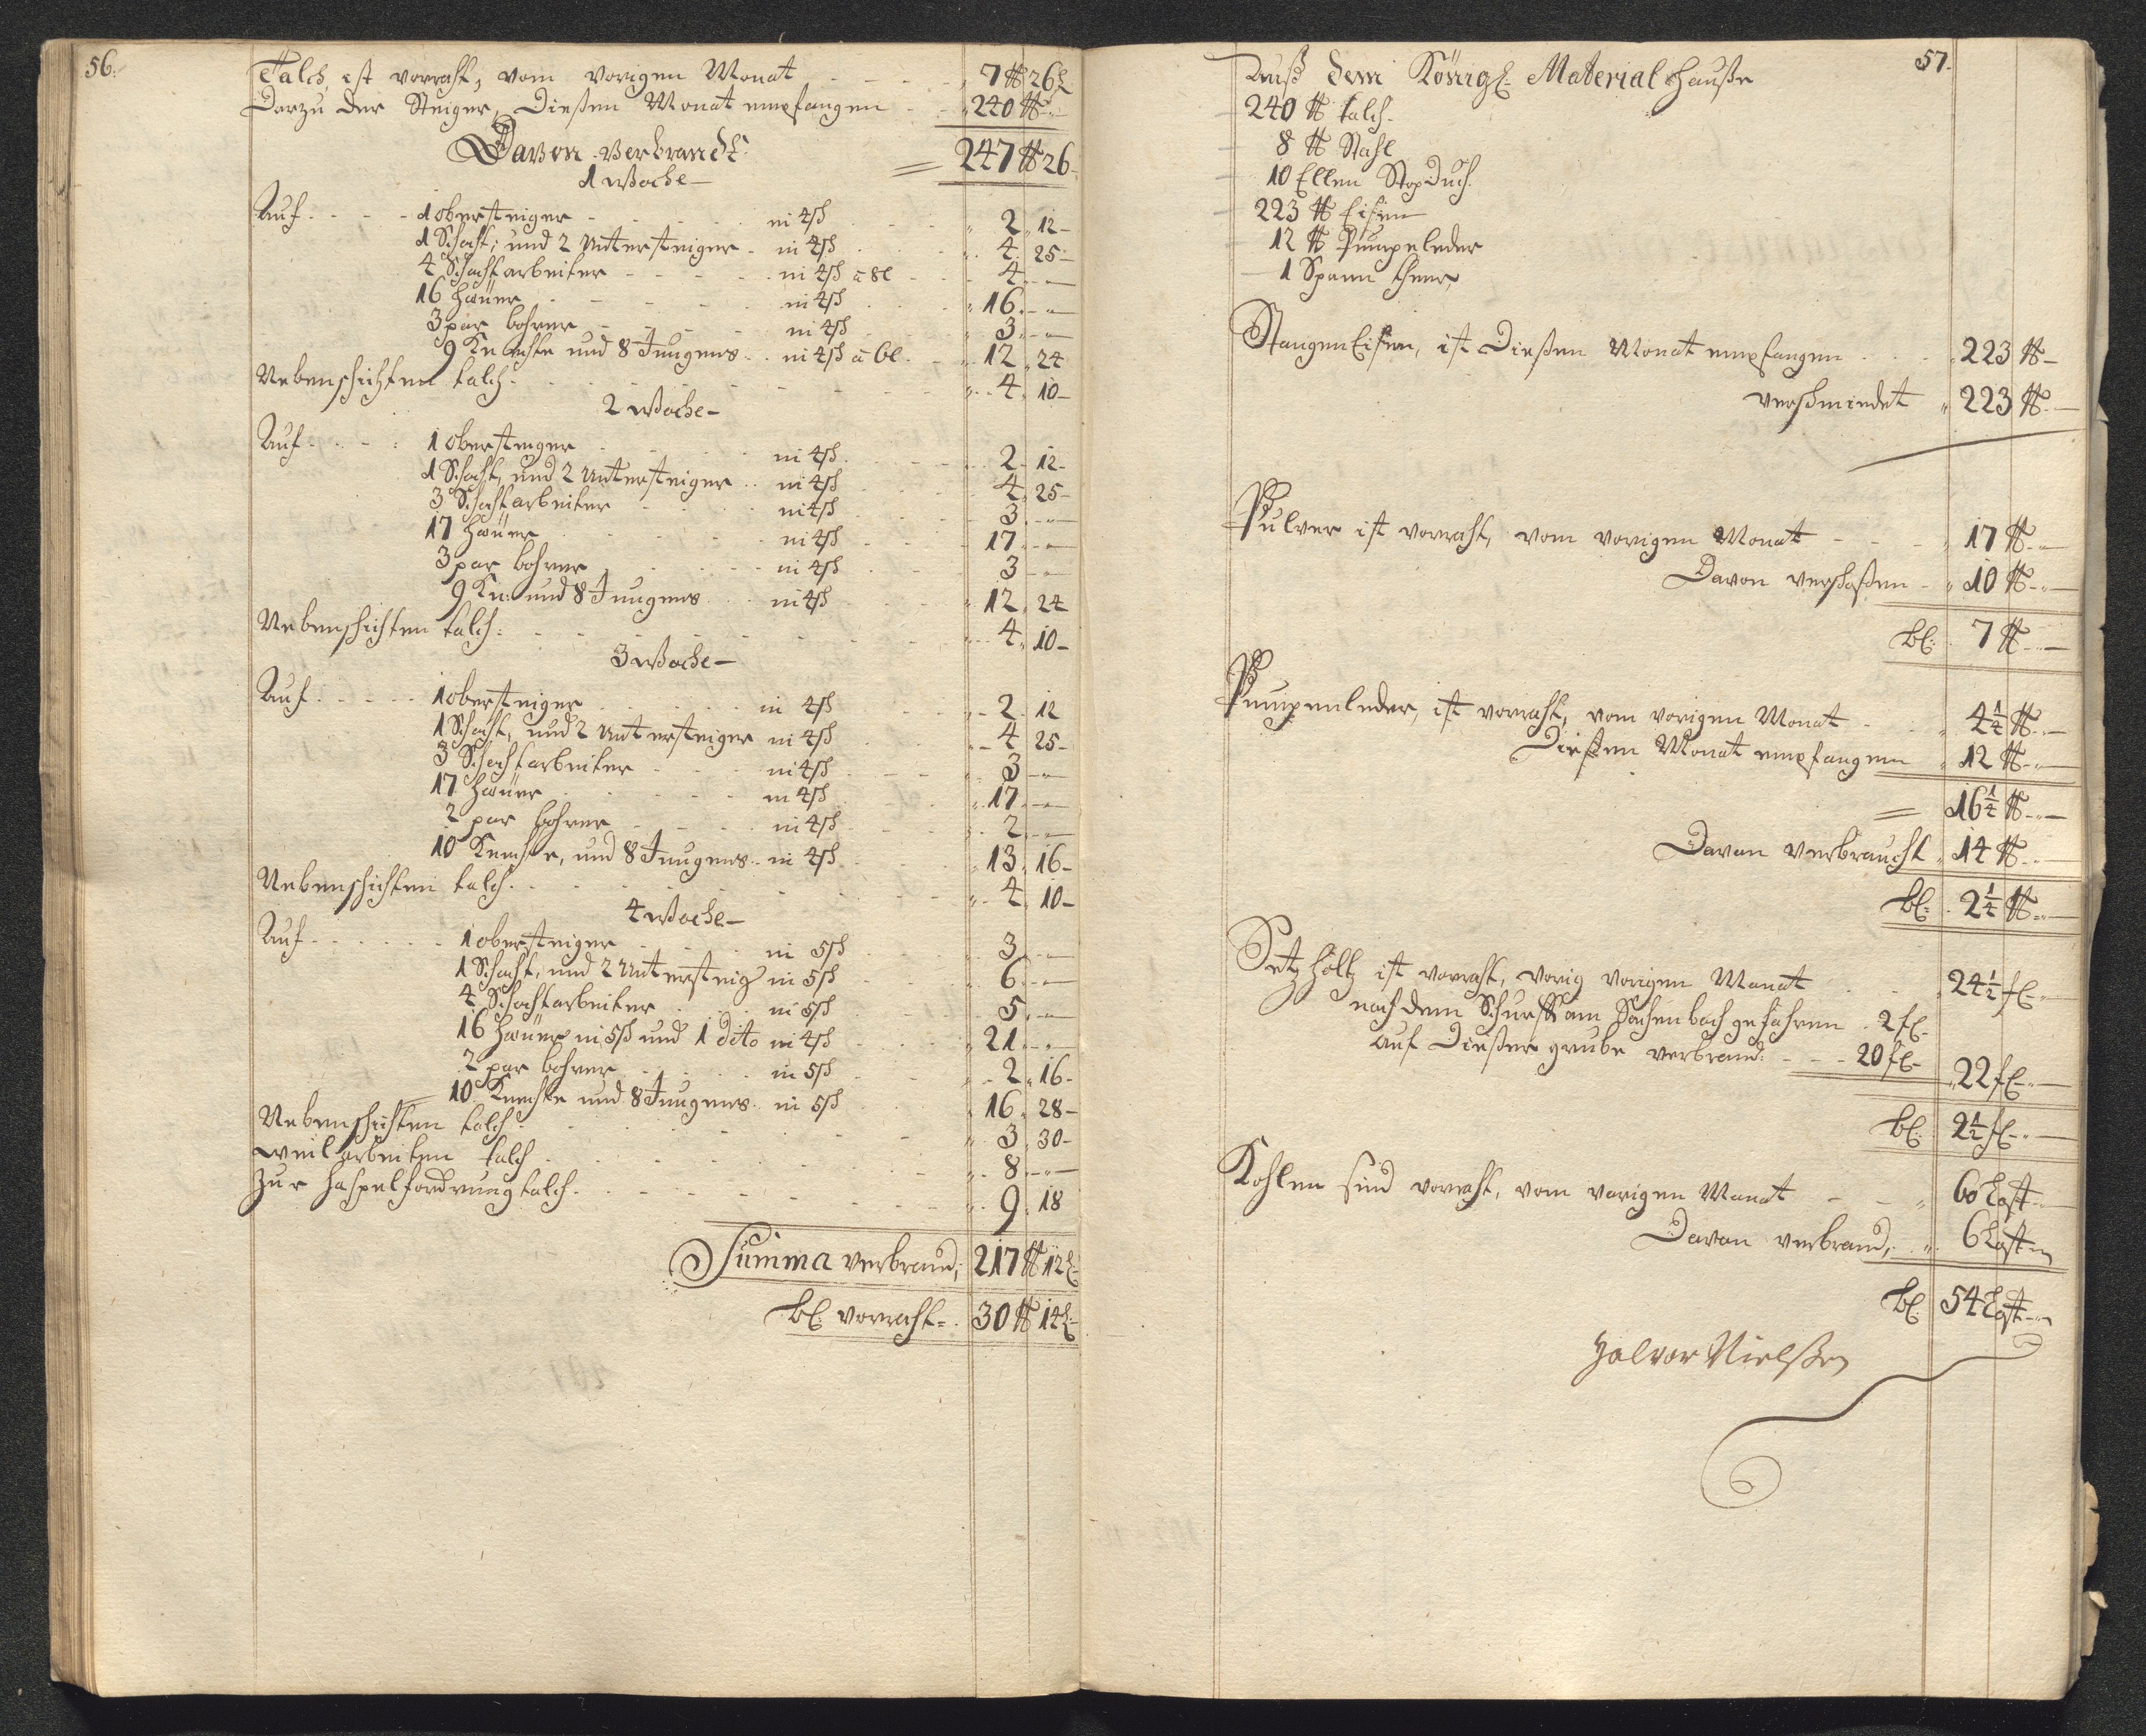 56.
Talch, ist vorraht, vom vorigen Monat - - - - „ 7 ℔ 26 L
Darzu der Steiger, Dießen Monat empfangen - - „ 240 ℔ - „ -
Davon verbrandt: = 247 ℔ 26 -
1 Woche -
Auf - - - - 1 obersteiger - - - - - in 4 sch - - - „ 2 „ 12 -
1 Schacht, und 2 Untersteiger - in 4 sch - - - „ 4 „ 25 -
4 Schachtarbeiter - - - - - in 4 sch â 8 l - - „ 4 - „ -
16 Hauer - - - - - in 4 sch - - - „ 16 - „ -
3 par bohrer - - - - in 4 sch - - - „ 3 - „ -
9 Knechte und 8 Jungens - - in 4 sch â 6 l - - „ 12 „ 24
Nebenschichten talch - - - - - - - „ 4 „ 10 -
2 Woche -
Auf - - - : 1 obersteiger - - - - in 4 sch - - - „ 2 - 12 -
1 Schacht, und 2 Untersteiger - - in 4 sch - - - „ 4 „ 25 -
3 Schachtarbeiter - - - in 4 sch - - - 3 - „ -
17 Hauer - - - - in 4 sch - - - 17 - „ -
3 par bohrer - - - - in 4 sch - - - 3 - „ -
9 Kn: und 8 Jungens - - in 4 sch - - - „ 12 „ 24
Nebenschichten talch: - - - - - - - „ 4 „ 10 -
3 Woche -
Auf - - - - - 1 obersteiger - - - - in 4 sch - - - „ 2 „ 12
1 Schacht, und 2 Untersteiger in 4 sch - - - „ 4 „ 25 -
3 Schachtarbeiter - - - in 4 sch - - - „ 3 - „ -
17 Hauer - - - - in 4 sch - - - „ 17 - „ -
2 par bohrer - - - - in 4 sch - - - „ 2 - „ -
10 Knechte, und 8 Jungens - - in 4 sch - - - „ 13 „ 16 -
Nebenschichten talch - - - - - - - „ 4 „ 10 -
4 Woche -
Auf - - - - - - 1 obersteiger - - - in 5 sch - - - „ 3 - „ -
1 Schacht, und 2 Untersteig in 5 sch - - - „ 6 - „ -
4 Schachtarbeiter - - - in 5 sch - - - „ 5 - „ -
16 Hauer in 5 sch und 1 dito in 4 sch - - - „ 21 - „ -
2 par bohrer - - - - in 5 sch - - - „ 2 „ 16 -
10 Knechte und 8 Jungens - in 5 sch - - - „ 16 „ 28 -
Nebenschichten talch - - - - - - - „ 3 „ 30 -
Weilarbeiten talch - - - - - - - „ 8 - „ -
Zur Haspelfordrung talch - - - - - - - „ 9 „ 18
Summa verbrand; 217 ℔ 12 L
bl. vorraht = . 30 ℔ 14 L
57.
Auß dem Königl. Material Hauße
- 240 ℔ talch -
- 8 ℔ Stahl
- 10 Ellen Stopduch.
- 223 ℔ Eisen
- 12 ℔ Pumpeleder
- 1 Spann theer,
Stangen Eisen, ist Dießen Monat empfangen - - - „ 223 ℔ -
verschmiedet „ 223 ℔ - „ -
Pulver ist vorraht, vom vorigen Monat - - - „ 17 ℔ - „ -
Davon verschoßen - „ 10 ℔ - „ -
bl: - 7 ℔ - „ -
Pumpenleder, ist vorraht, vom vorigen Monat - - - „ 4 1/4 ℔ - „ -
Dießen Monat empfangen „ 12 ℔ - „ -
= 16 1/4 ℔ - „ -
Davon verbraucht „ 14 ℔ - „ -
bl: - 2 1/4 ℔ - „ -
Setz Holtz ist vorraht, vorig vorigen Monat - - - „ 24 1/2 fl - „ -
nach dem Schurff am gefahren . 2 fl -
auf Dießer grube verbrand: - - - 20 fl - „ 22 fl - „ -
bl: 2 1/2 fl - „ -
Kohlen sind vorraht, vom vorigen Monat - - - „ 60 Last - „ -
Davon verbrand, - „ 6 Last - „
bl: 54 Last - „
Halvor Nielßen